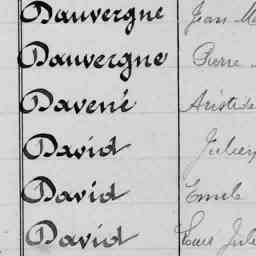 Dauvergne Jean
Dauvergne Pierre
Davené Aristide
David Julien
David Emile
David Louis Jules